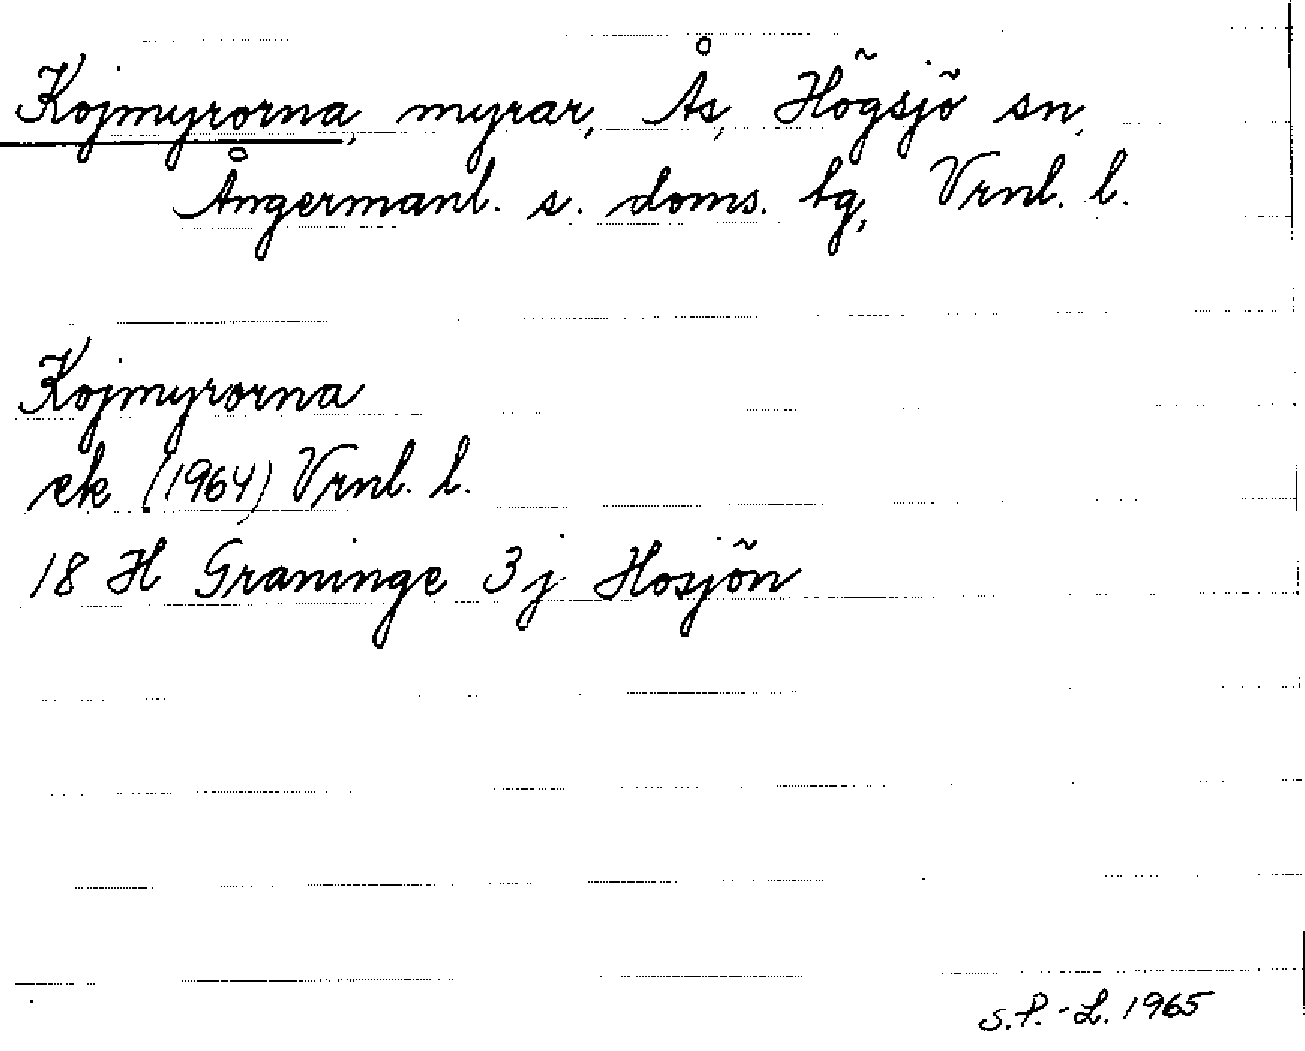 Kojmyrorna, myrar, Ås, Högsjö sn,
Ångermanl. s. doms. tg, Vrnl. l.
Kojmyrorna
ek (1964) Vrnl. l.
18 H Graninge 3 j Hosjön
S.P.-L. 1965